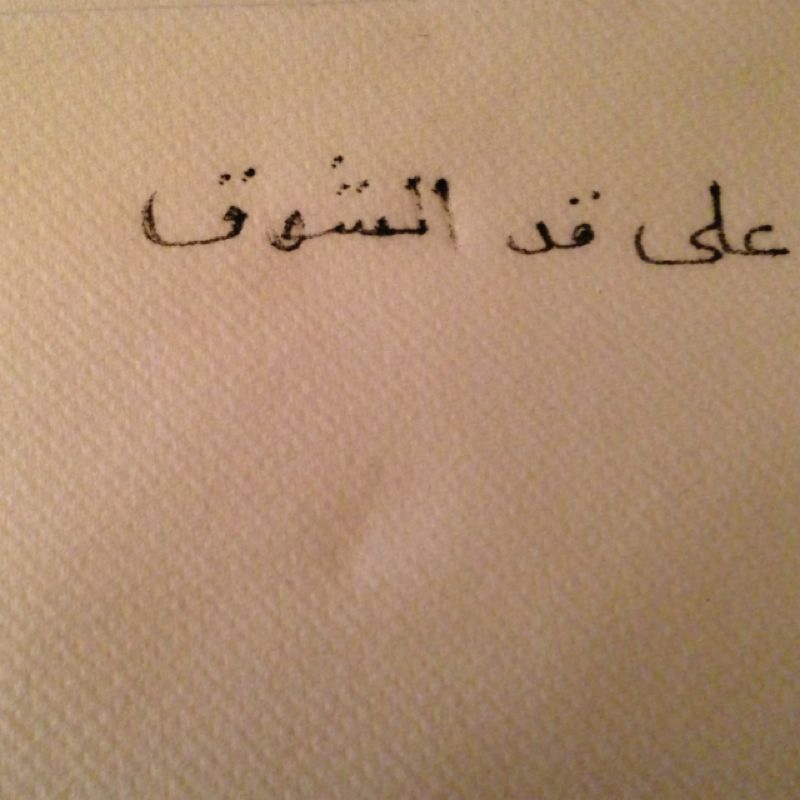 على قد الشوق